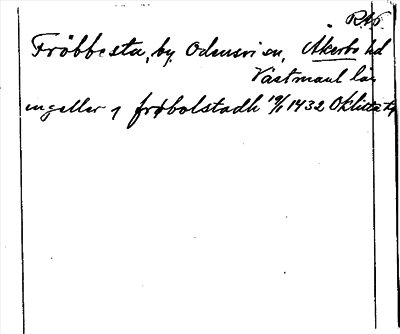 RAp.
Fröbbesta, by, Odensvi sn, Åkerbo hd
Västmanl län
ingeller j frøbolstadh 19/1 1432 Oklista